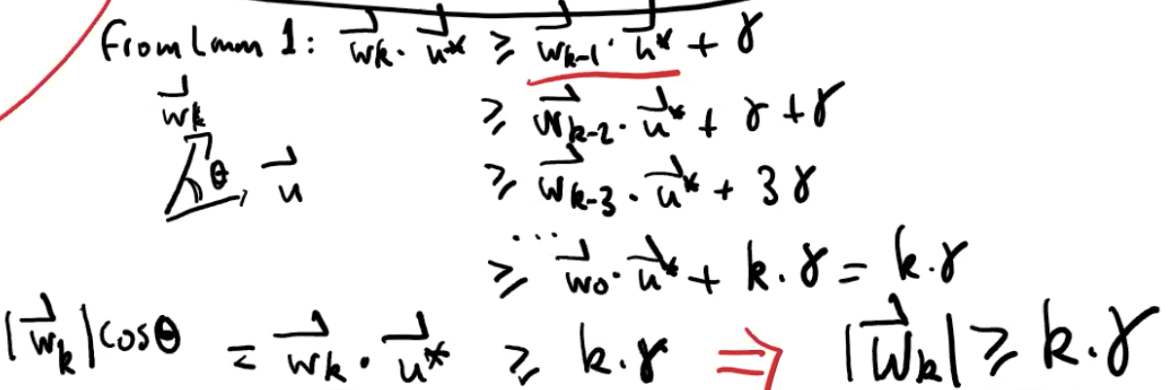 From Lmm 1: w⃗k · u⃗* ≥ w⃗k-1 · u⃗* + γ
w⃗k
≥ w⃗k-2 · u⃗* + γ + γ
θ u⃗
≥ w⃗k-3 · u⃗* + 3γ
...
≥ w⃗0 · u⃗* + k.γ = k.γ
|w⃗k|cosθ = w⃗k · u⃗* ≥ k.γ ⇒ |w⃗k| ≥ k.γ